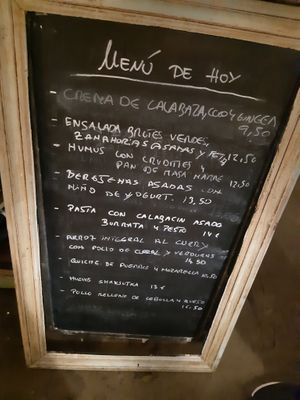 MENÚ DE HOY
- CREMA DE CALABAZA, COCO Y GINGER
9,50
- ENSALADA BROTES VERDES,
ZANAHORIAS ASADAS Y 12,50
- HUMUS CON CRUDITES Y
PAN DE MASA MADRE 12,50
- BERENJENAS ASADAS CON
DE YOGURT. 13,50
- PASTA CON CALABACIN ASADO
BURRATA Y PESTO 14 €
- ARROZ INTEGRAL AL CURRY
CON POLLO DE CORRAL Y VERDURAS
14,50
- QUICHE DE PUERROS Y MOZARELLA
- HUEVOS SHAKSUKA 13 €
- POLLO RELLENO DE CEBOLLA Y QUESO